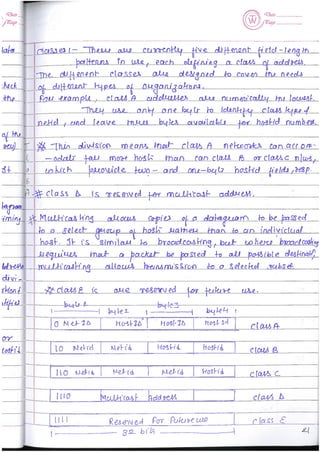 Classes :- There are currently five different field-length
patterns in use, each defining a class of address.
The different classes are designed to cover the needs
of different types of organizations.
For example, class A addresses are numerically the lowest.
They use only one byte to identify class type &
netid, and leave three bytes available for hostid numbers.
* This division means that class A networks can accom-
-odate far more hosts than can class B or class C n/ws,
which provide two- and one-byte hostid fields, resp.
* class D is reserved for multicast address.
* Multicasting allows copies of a datagram to be passed
to a select group of hosts rather than to an individual
host. It is similar to broadcasting, but where broadcasting
requires that a packet be passed to all possible destinatn,
multicasting allows transmission to a selected subset.
* class E is are reserved for future use.
byte 1 byte 2 byte 3 byte 4
0 Net ID Host ID Host ID Host Id class A
10 Netid Netid Hostid Hostid class B
110 Netid Netid Netid Hostid class C
1110 Multicast Address class D
1111 Reserved For Future use class E
32 bits